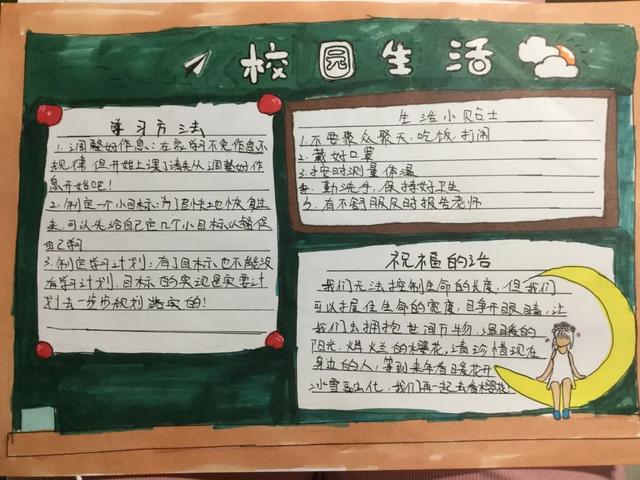 校园生活
学习方法
1.调整好作息:在家学习不免作息不
规律但开始上课了请先从调整好作
息开始吧!
2.制定一个小目标:为了尽快地恢复过
来,可以先给自己定几个小目标以督促
自己
3.制定学习计划:有了目标也不能没
有学习计划.目标的实现是需要计
划去一步步规划落实的!
生活小贴士
1.不要聚众聚天,吃饭,打闹
2.戴好口罩
3.按时测量体温
4.勤洗手,保持好卫生
5.有不舒服及时报告老师
祝福的话
我们无法控制生命的长度,但我们
可以握住生命的宽度,睁开眼睛,让
我们去拥抱世间万物,温暖的
阳光.灿烂的樱花,请珍惜现在
身边的人,等到来年春暖花开
冰雪融化,我们再一起去看樱花